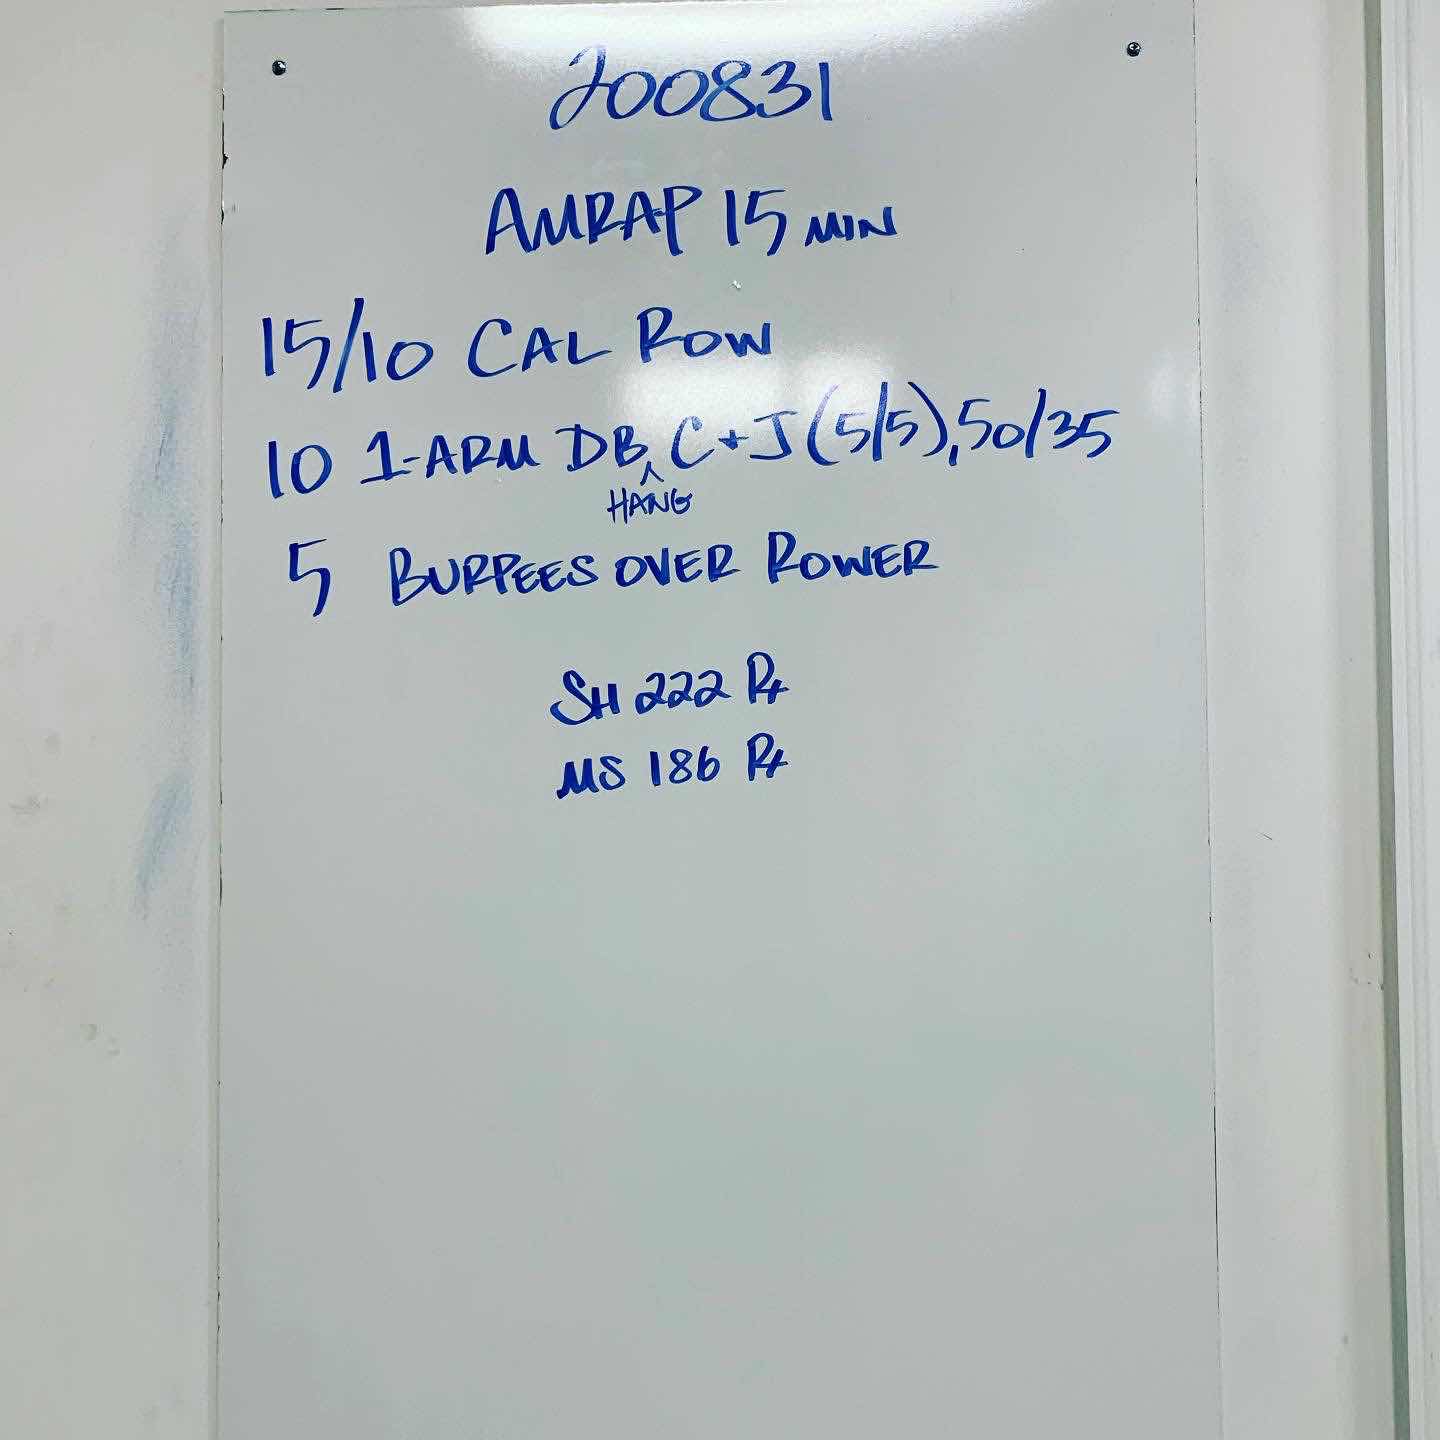 200831
AMRAP 15 MIN
15/10 CAL ROW
10 1-ARM DB ^ C+J (5/5), 50/35
HANG
5 BURPEES OVER ROWER
SH 222 Rx
MS 186 Rx